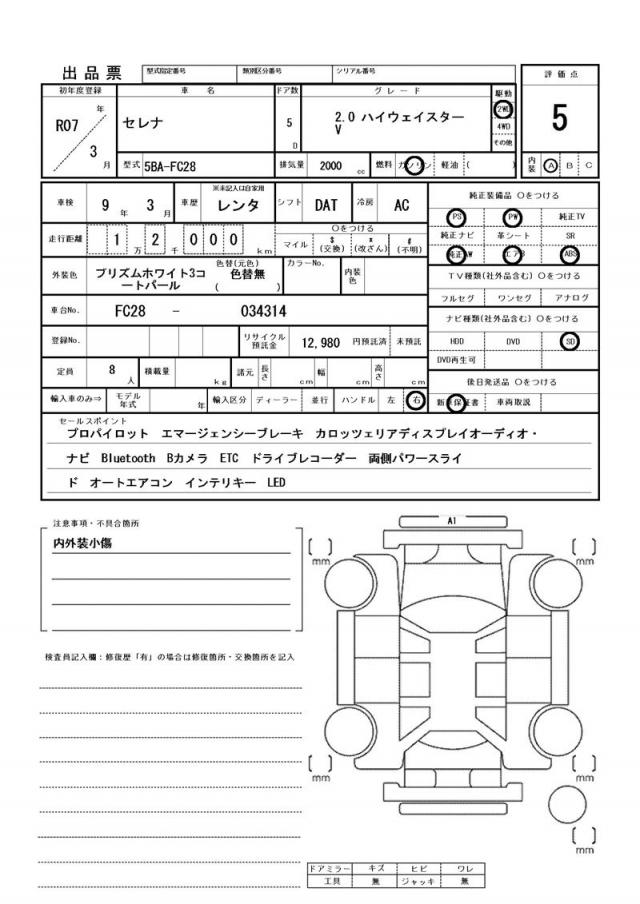 出品票 型式指定番号 類別区分番号 シリアル番号 評価点
初年度登録 車名 ドア数 グレード 駆動
R07 年 3 月 セレナ 5 D 2.0 ハイウェイスター 2WD 5
V 4WD
その他
型式 5BA-FC28 排気量 2000 cc 燃料 ガソリン 軽油 ( ) 内装 A B C
車検 9 年 3 月 車歴 ※未記入は自家用 レンタ シフト DAT 冷房 AC 純正装備品 〇をつける
PS PW 純正TV
走行距離 1 万 2 千 0 0 0 km 〇をつける マイル $ (交換) * (改ざん) # (不明) 純正ナビ 革シート SR
純正AW エアB ABS
外装色 プリズムホワイト3コ 色替(元色) カラーNo. 内装色 TV種類(社外品含む) 〇をつける
ートパール ( 色替無 ) フルセグ ワンセグ アナログ
車台No. FC28 - 034314 ナビ種類(社外品含む) 〇をつける
登録No. リサイクル預託金 12,980 円預託済 未預託 HDD DVD SD
DVD再生可
定員 8 人 積載量 kg 諸元 長さ cm 幅 cm 高さ cm 後日発送品 〇をつける
輸入車のみ⇒ モデル年式 年 輸入区分 ディーラー 並行 ハンドル 左 右 新車保証書 車両取説
セールスポイント
プロパイロット エマージェンシーブレーキ カロッツェリアディスプレイオーディオ・
ナビ Bluetooth Bカメラ ETC ドライブレコーダー 両側パワースライ
ド オートエアコン インテリキー LED
注意事項・不具合箇所 A1
内外装小傷
[ ] mm [ ] mm
検査員記入欄：修復歴「有」の場合は修復箇所・交換箇所を記入
[ ] mm [ ] mm
[ ] mm
ドアミラー キズ ヒビ ワレ
工具 無 ジャッキ 無